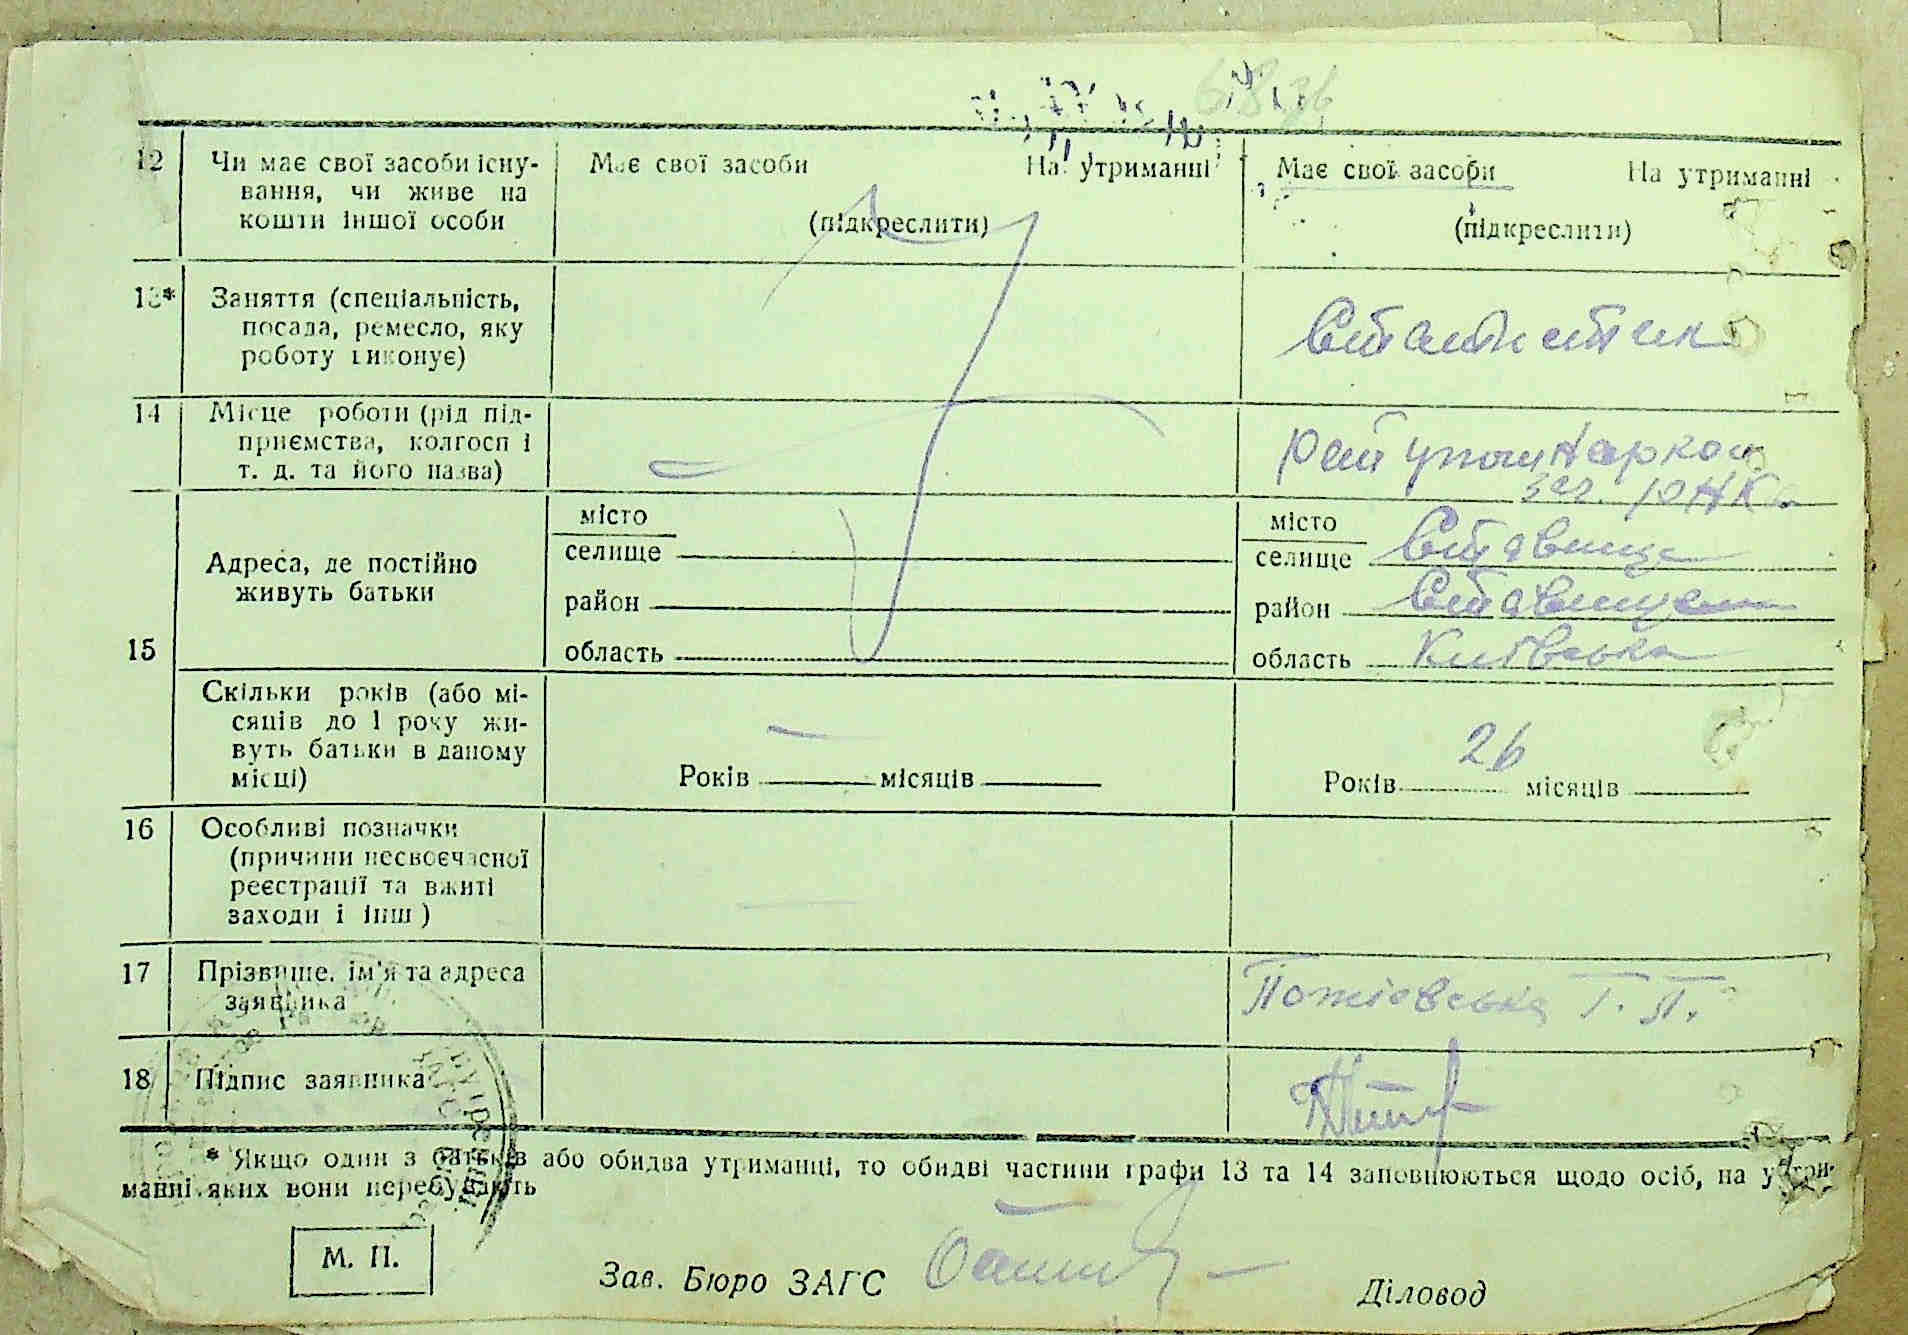 12 Чи має свої засоби існу-
вання, чи живе на
кошти іншої особи
Має свої засоби На утриманні
(підкреслити)
Має свої засоби На утриманні
(підкреслити)
13* Заняття (спеціальність,
посада, ремесло, яку
роботу виконує)
Статистик
14 Місце роботи (рід під-
приємства, колгосп і
т. д. та його назва)
Рай упом Нарком
заг.
15 Адреса, де постійно
живуть батьки
місто
селище
район
область
місто
селище Ставище
район Ставище
область Київська
Скільки років (або мі-
сяців до 1 року жи-
вуть батьки в даному
місці)
Років — місяців
Років 26 місяців
16 Особливі позначки
(причини несвоєчасної
реєстрації та вжиті
заходи і інш)
17 Прізвище, ім'я та адреса
заявника
Г. П.
18 Підпис заявника
* Якщо один з батьків або обидва утриманці, то обидві частини графи 13 та 14 заповнюються щодо осіб, на утри-
манні яких вони перебувають
М. П.
Зав. Бюро ЗАГС
Діловод